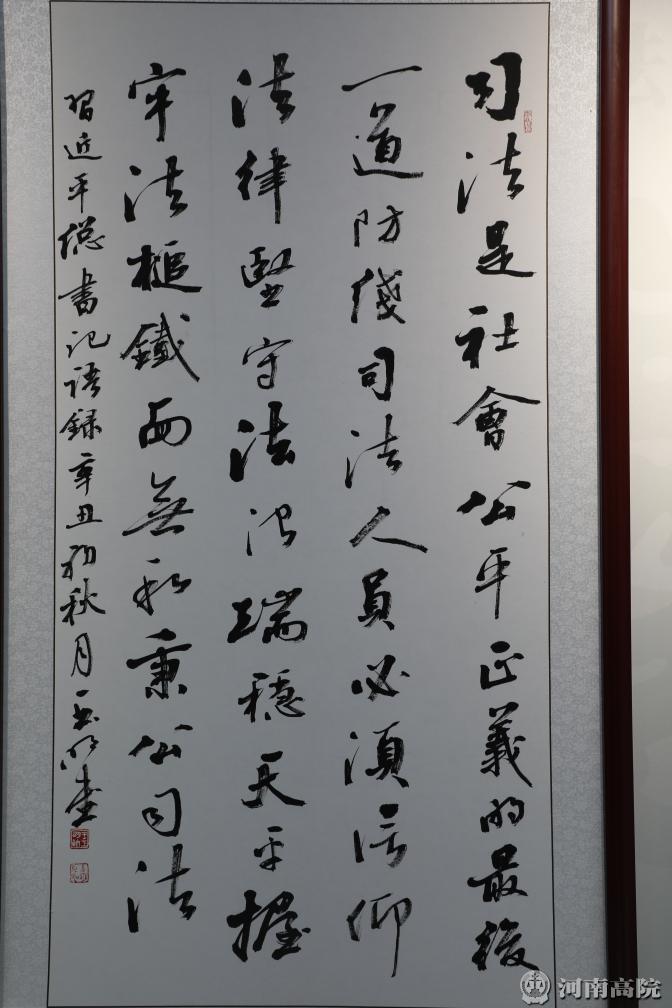 司法是社會公平正義的最後
一道防綫司法人員必須信仰
法律堅守法治端穩天平握
牢法槌鐵面無私秉公司法
習近平總書記語錄辛丑初秋月
河南高院